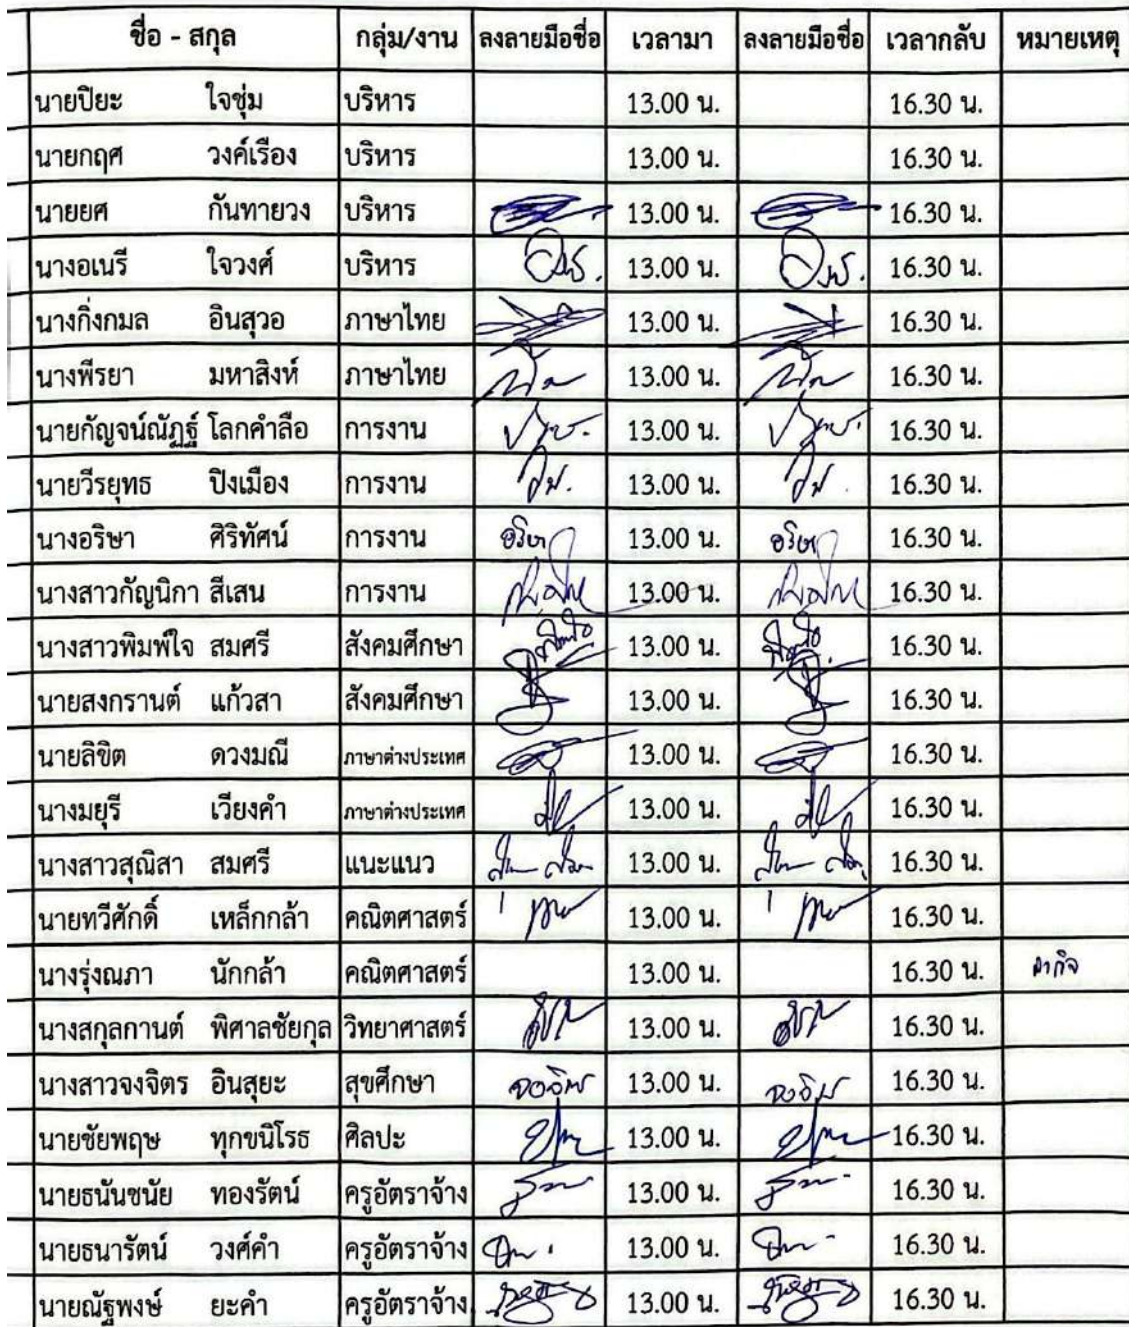 ชื่อ - สกุล กลุ่ม/งาน ลงลายมือชื่อ เวลามา ลงลายมือชื่อ เวลากลับ หมายเหตุ
นายปิยะ ใจชุ่ม บริหาร 13.00 น. 16.30 น.
นายกฤศ วงค์เรือง บริหาร 13.00 น. 16.30 น.
นายยศ กันทายวง บริหาร 13.00 น. 16.30 น.
นางอเนรี ใจวงศ์ บริหาร 13.00 น. 16.30 น.
นางกิ่งกมล อินสุวอ ภาษาไทย 13.00 น. 16.30 น.
นางพีรยา มหาสิงห์ ภาษาไทย 13.00 น. 16.30 น.
นายกัญจน์ณัฏฐ์ โลกคำลือ การงาน 13.00 น. 16.30 น.
นายวีรยุทธ ปิงเมือง การงาน 13.00 น. 16.30 น.
นางอริษา ศิริทัศน์ การงาน อริษา 13.00 น. อริษา 16.30 น.
นางสาวกัญนิกา สีเสน การงาน 13.00 น. 16.30 น.
นางสาวพิมพ์ใจ สมศรี สังคมศึกษา 13.00 น. 16.30 น.
นายสงกรานต์ แก้วสา สังคมศึกษา 13.00 น. 16.30 น.
นายลิขิต ดวงมณี ภาษาต่างประเทศ 13.00 น. 16.30 น.
นางมยุรี เวียงคำ ภาษาต่างประเทศ 13.00 น. 16.30 น.
นางสาวสุณิสา สมศรี แนะแนว 13.00 น. 16.30 น.
นายทวีศักดิ์ เหล็กกล้า คณิตศาสตร์ 13.00 น. 16.30 น.
นางรุ่งณภา นักกล้า คณิตศาสตร์ 13.00 น. 16.30 น. ลากิจ
นางสกุลกานต์ พิศาลชัยกุล วิทยาศาสตร์ 13.00 น. 16.30 น.
นางสาวจงจิตร อินสุยะ สุขศึกษา 13.00 น. 16.30 น.
นายชัยพฤษ ทุกขนิโรธ ศิลปะ 13.00 น. 16.30 น.
นายธนันชนัย ทองรัตน์ ครูอัตราจ้าง 13.00 น. 16.30 น.
นายธนารัตน์ วงศ์คำ ครูอัตราจ้าง 13.00 น. 16.30 น.
นายณัฐพงษ์ ยะคำ ครูอัตราจ้าง 13.00 น. 16.30 น.